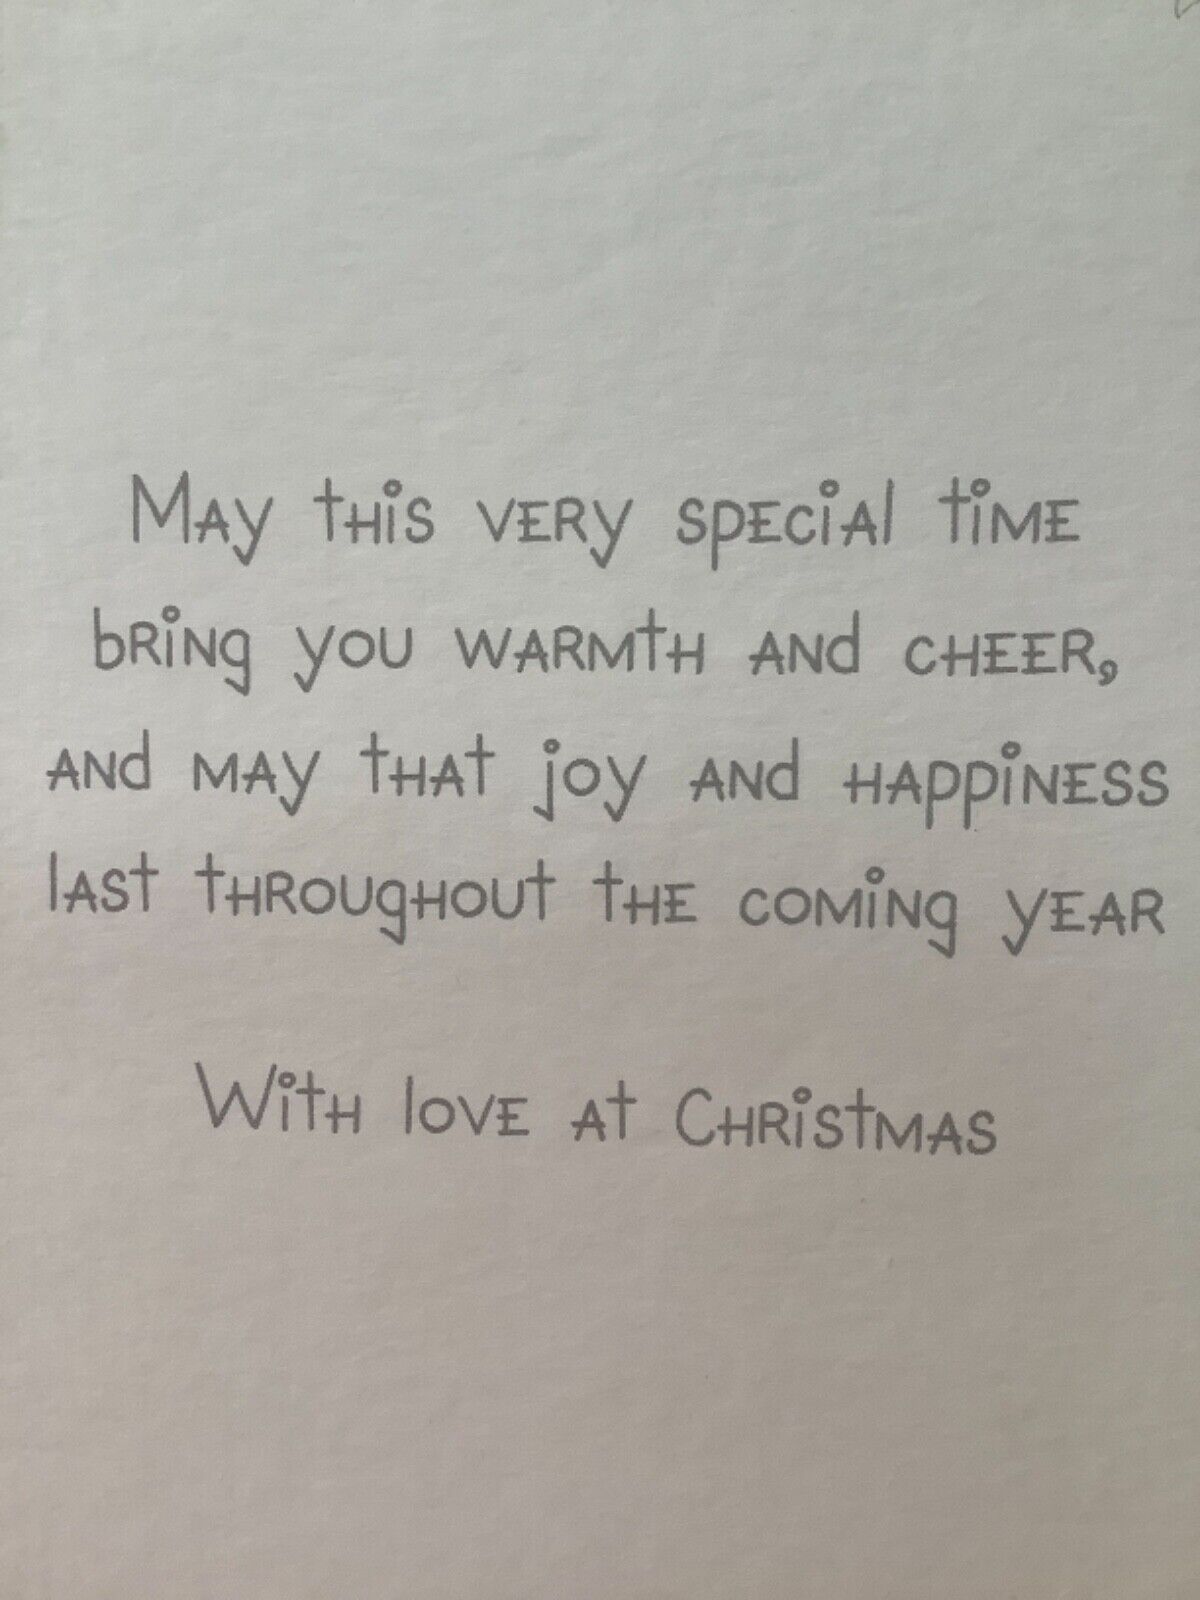 May this very special time
bring you warmth and cheer,
and may that joy and happiness
last throughout the coming year
With love at Christmas